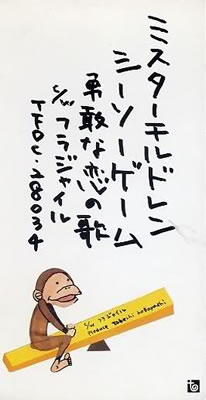 ミスターチルドレン
シーソーゲーム
勇敢な恋の歌
C/W フラジャイル
TFDC・28034
C/W フラジャイル
Produce Takeshi Kobayashi